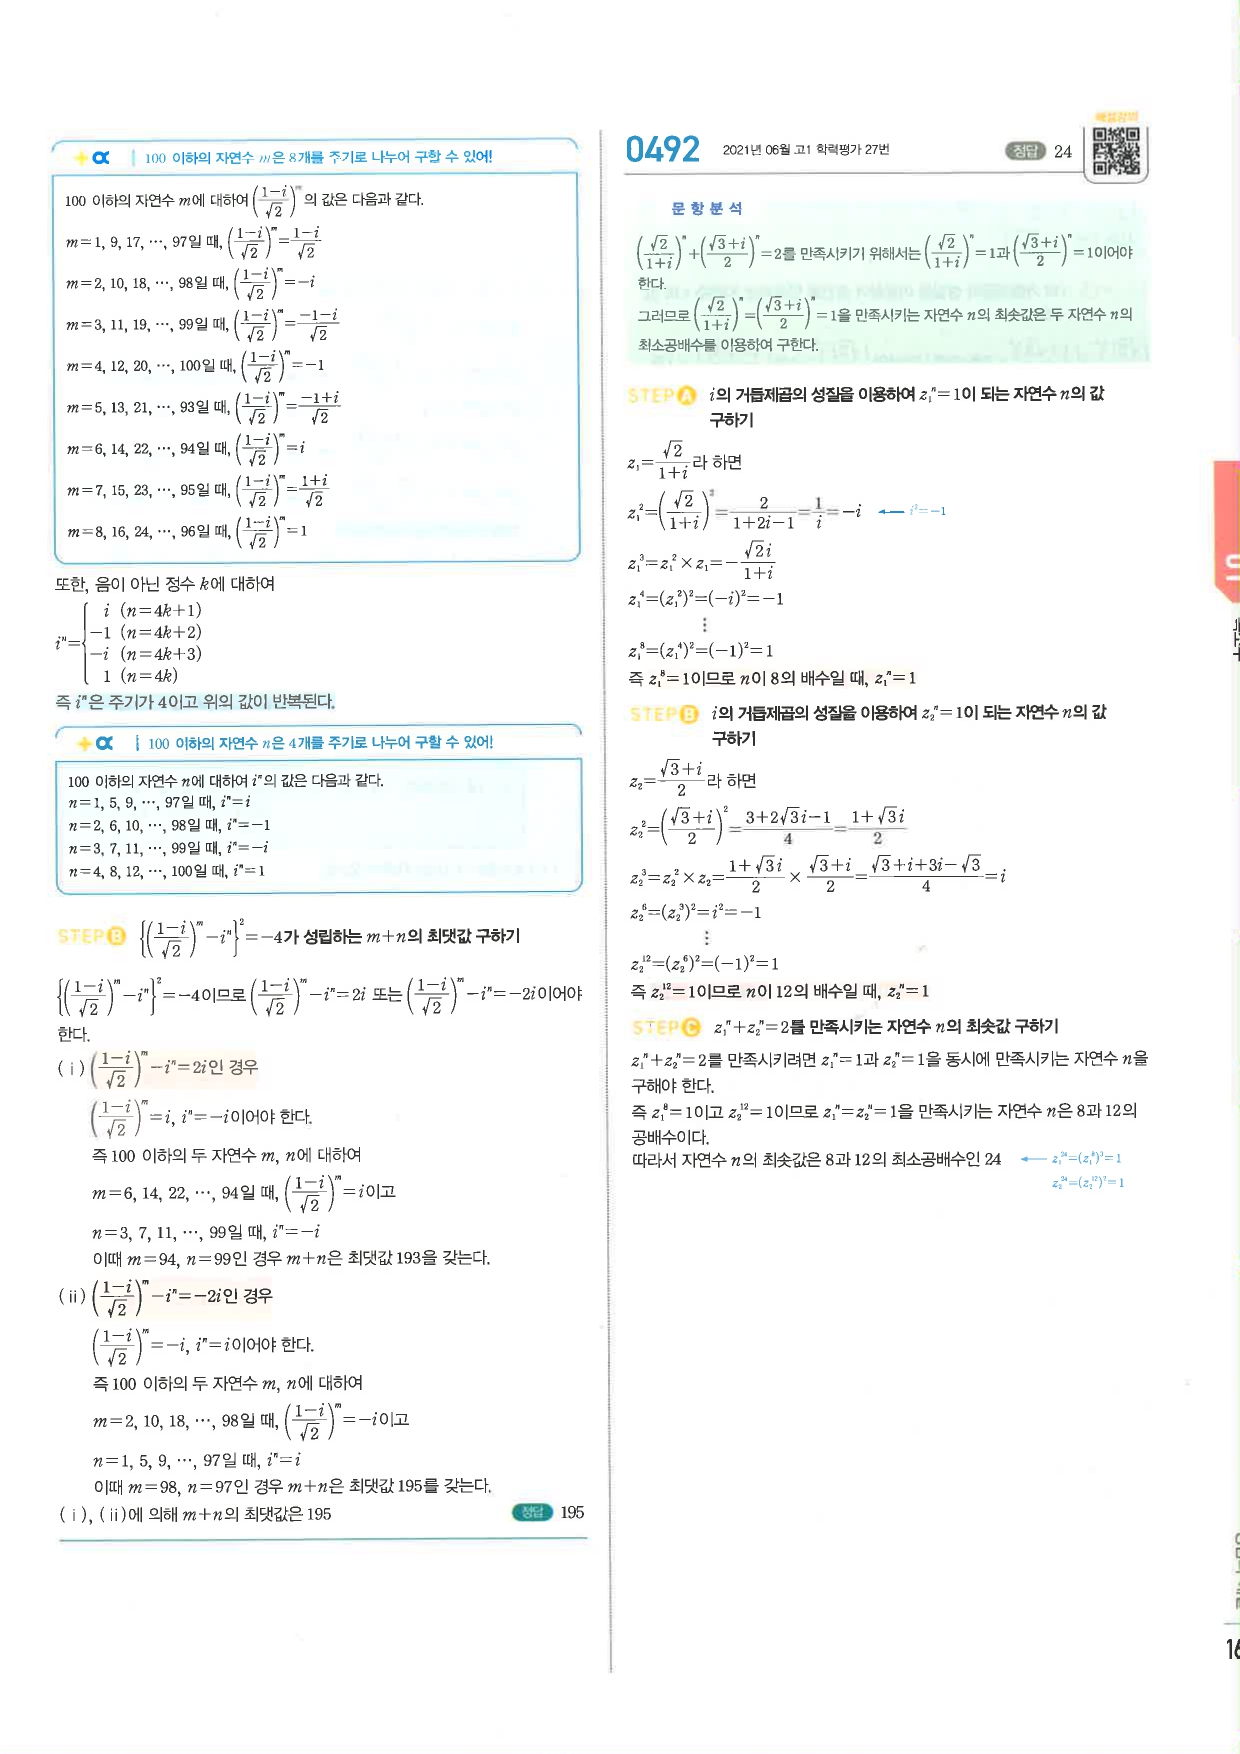 +α 100 이하의 자연수 m은 8개를 주기로 나누어 구할 수 있어!
100 이하의 자연수 m에 대하여 ((1-i)/√2)^m 의 값은 다음과 같다.
m=1, 9, 17, ⋯, 97일 때, ((1-i)/√2)^m=(1-i)/√2
m=2, 10, 18, ⋯, 98일 때, ((1-i)/√2)^m=-i
m=3, 11, 19, ⋯, 99일 때, ((1-i)/√2)^m=(-1-i)/√2
m=4, 12, 20, ⋯, 100일 때, ((1-i)/√2)^m=-1
m=5, 13, 21, ⋯, 93일 때, ((1-i)/√2)^m=(-1+i)/√2
m=6, 14, 22, ⋯, 94일 때, ((1-i)/√2)^m=i
m=7, 15, 23, ⋯, 95일 때, ((1-i)/√2)^m=(1+i)/√2
m=8, 16, 24, ⋯, 96일 때, ((1-i)/√2)^m=1
또한, 음이 아닌 정수 k에 대하여
i^n={
i (n=4k+1)
-1 (n=4k+2)
-i (n=4k+3)
1 (n=4k)
즉 i^n은 주기가 4이고 위의 값이 반복된다.
+α 100 이하의 자연수 n은 4개를 주기로 나누어 구할 수 있어!
100 이하의 자연수 n에 대하여 i^n의 값은 다음과 같다.
n=1, 5, 9, ⋯, 97일 때, i^n=i
n=2, 6, 10, ⋯, 98일 때, i^n=-1
n=3, 7, 11, ⋯, 99일 때, i^n=-i
n=4, 8, 12, ⋯, 100일 때, i^n=1
STEP B {((1-i)/√2)^m-i^n}^2=-4가 성립하는 m+n의 최댓값 구하기
{((1-i)/√2)^m-i^n}^2=-4이므로 ((1-i)/√2)^m-i^n=2i 또는 ((1-i)/√2)^m-i^n=-2i이어야
한다.
(ⅰ) ((1-i)/√2)^m-i^n=2i인 경우
((1-i)/√2)^m=i, i^n=-i이어야 한다.
즉 100 이하의 두 자연수 m, n에 대하여
m=6, 14, 22, ⋯, 94일 때, ((1-i)/√2)^m=i이고
n=3, 7, 11, ⋯, 99일 때, i^n=-i
이때 m=94, n=99인 경우 m+n은 최댓값 193을 갖는다.
(ⅱ) ((1-i)/√2)^m-i^n=-2i인 경우
((1-i)/√2)^m=-i, i^n=i이어야 한다.
즉 100 이하의 두 자연수 m, n에 대하여
m=2, 10, 18, ⋯, 98일 때, ((1-i)/√2)^m=-i이고
n=1, 5, 9, ⋯, 97일 때, i^n=i
이때 m=98, n=97인 경우 m+n은 최댓값 195를 갖는다.
(ⅰ), (ⅱ)에 의해 m+n의 최댓값은 195
정답 195
0492 2021년 06월 고1 학력평가 27번
정답 24
해설강의
문항분석
(√2/(1+i))^n+((√3+i)/2)^n=2를 만족시키기 위해서는 (√2/(1+i))^n=1과 ((√3+i)/2)^n=1이어야
한다.
그러므로 (√2/(1+i))^n=((√3+i)/2)^n=1을 만족시키는 자연수 n의 최솟값은 두 자연수 n의
최소공배수를 이용하여 구한다.
STEP A i의 거듭제곱의 성질을 이용하여 z₁^n=1이 되는 자연수 n의 값
구하기
z₁=√2/(1+i)라 하면
z₁^2=(√2/(1+i))^2=2/(1+2i-1)=1/i=-i ← i^2=-1
z₁^3=z₁^2×z₁=-√2i/(1+i)
z₁^4=(z₁^2)^2=(-i)^2=-1
⋮
z₁^8=(z₁^4)^2=(-1)^2=1
즉 z₁^8=1이므로 n이 8의 배수일 때, z₁^n=1
STEP B i의 거듭제곱의 성질을 이용하여 z₂^n=1이 되는 자연수 n의 값
구하기
z₂=(√3+i)/2라 하면
z₂^2=((√3+i)/2)^2=(3+2√3i-1)/4=(1+√3i)/2
z₂^3=z₂^2×z₂=(1+√3i)/2×(√3+i)/2=(√3+i+3i-√3)/4=i
z₂^6=(z₂^3)^2=i^2=-1
⋮
z₂^12=(z₂^6)^2=(-1)^2=1
즉 z₂^12=1이므로 n이 12의 배수일 때, z₂^n=1
STEP C z₁^n+z₂^n=2를 만족시키는 자연수 n의 최솟값 구하기
z₁^n+z₂^n=2를 만족시키려면 z₁^n=1과 z₂^n=1을 동시에 만족시키는 자연수 n을
구해야 한다.
즉 z₁^8=1이고 z₂^12=1이므로 z₁^n=z₂^n=1을 만족시키는 자연수 n은 8과 12의
공배수이다.
따라서 자연수 n의 최솟값은 8과 12의 최소공배수인 24 ← z₁^24=(z₁^8)^3=1
z₂^24=(z₂^12)^2=1